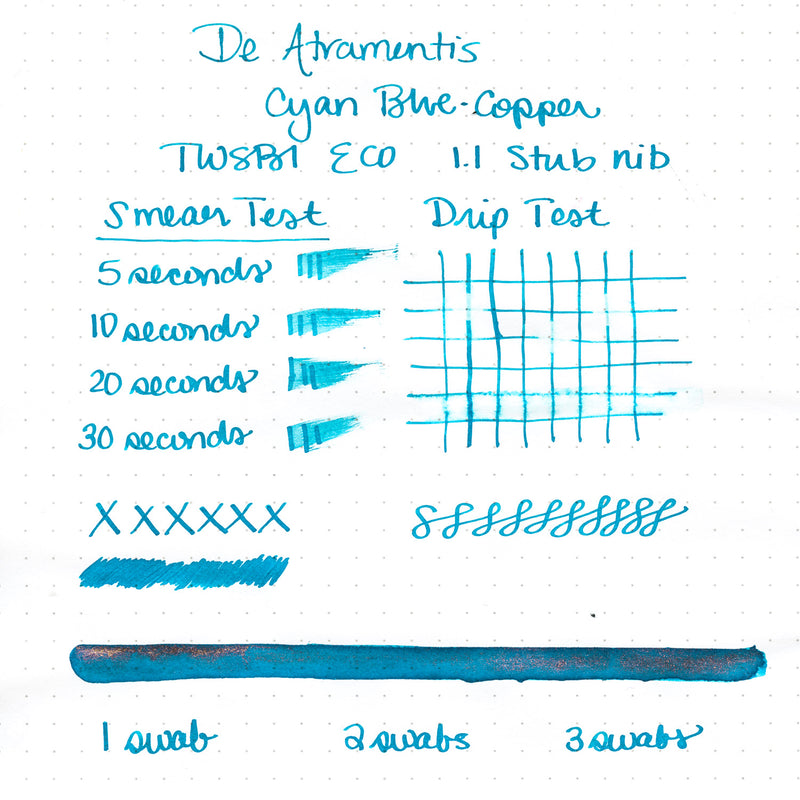 De Atramentis
Cyan Blue-Copper
TWSBI ECO 1.1 Stub nib
Smear Test Drip Test
5 seconds
10 seconds
20 seconds
30 seconds
X X X X X X
1 swab 2 swabs 3 swabs